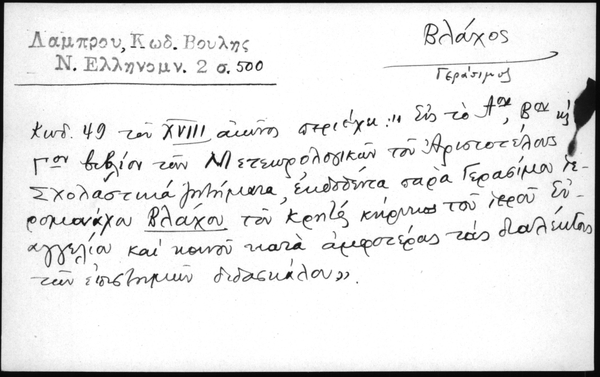 Λαμπρου, Κωδ. Βουλης
Ν. Ελληνομν. 2 σ. 500
Βλάχος
Γεράσιμος
Κωδ. 49 τοῦ XVIII αἰῶνος περιέχει: "Εἰς τὸ Αον, Βον κ̣
Γον βιβλίον τῶν Μετεωρολογικῶν τοῦ Ἀριστοτέλους
Σχολαστικὰ ζητήματα, ἐκδοθέντα παρὰ Γερασίμου ἱε-
ρομονάχου Βλάχου τοῦ Κρητός, κήρυκος τοῦ ἱεροῦ Εὐ-
αγγελίου καὶ κοινοῦ κατὰ ἀμφοτέρας τὰς διαλέκτους
τῶν ἐπιστημῶν διδασκάλου».